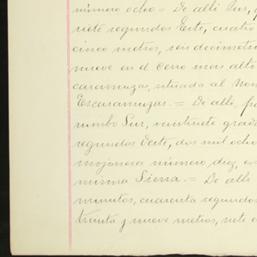 número ocho = De allí Sur,
siete segundos Este, cuatro
cinco metros, seis decímetros
nueve en el Cerro más alto
caramuzas, situada al Nor
Escaramuzas. = De allí,
rumbo Sur, veintisiete grad
segundos Oeste, dos mil ocho
mojonera número diez, en
misma Sierra. = De allí
minutos, cuarenta segundos
treinta y nueve metros, siete